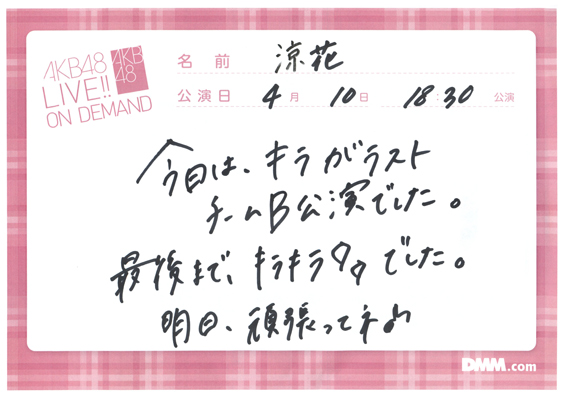 AKB48
LIVE!!
ON DEMAND
AKB
48
名前 涼花
公演日 4月 10日 18:30 公演
今日は、キラがラスト
チームB公演でした。
最後まで、キラキラ でした。
明日、頑張ってネ♪
DMM.com